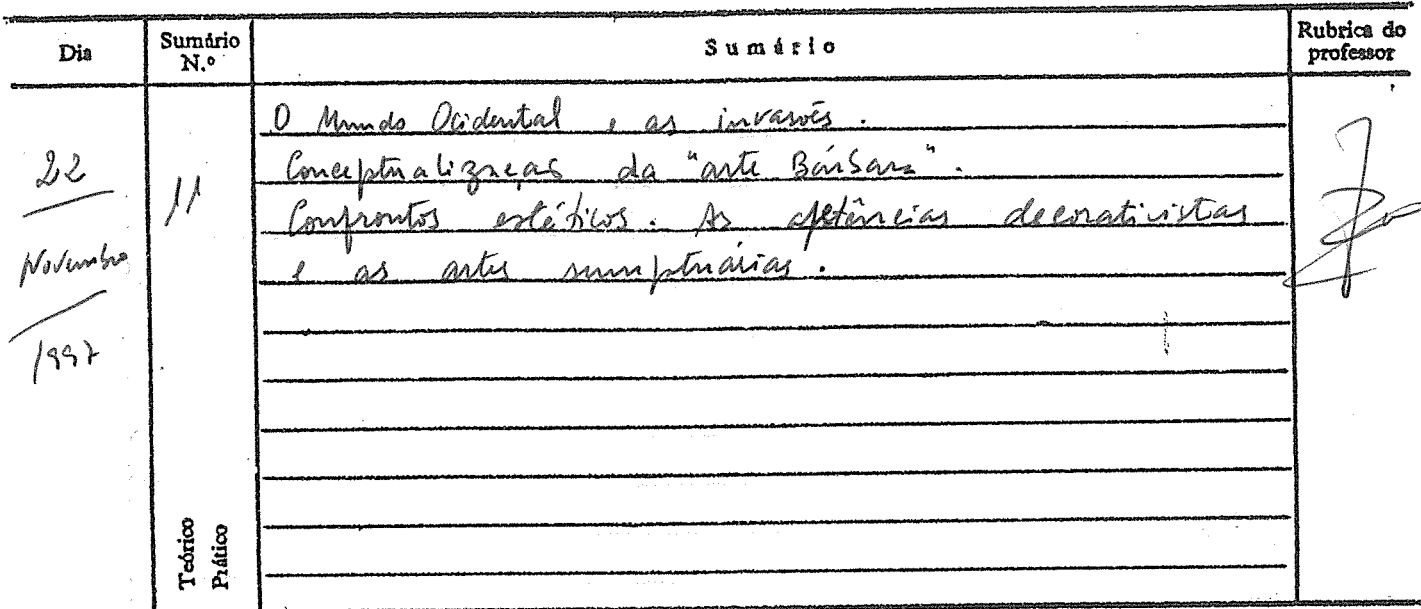 Dia
Sumário N.º
Sumário
Rubrica do professor
22
Novembro
1997
11
O Mundo Ocidental e as invasões.
Conceptualização da "arte Bárbara".
Confrontos estéticos. As apetências decorativistas
e as artes sumptuárias.
Teórico
Prático